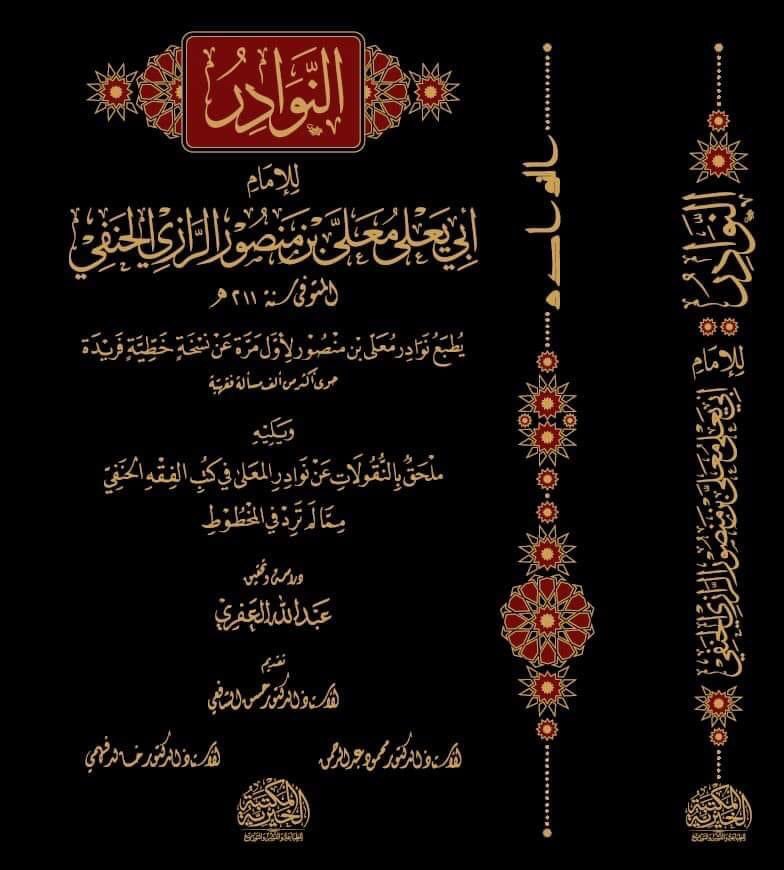 النَّوَادِرُ
لِلإِمَامِ
أَبِي يَعْلَى مُعَلَّى بْنِ مَنْصُورٍ الرَّازِيِّ الْحَنَفِيِّ
المتوفى سنة ٢١١ هـ
يُطْبَعُ نَوَادِرُ مُعَلَّى بْنِ مَنْصُورٍ لِأَوَّلِ مَرَّةٍ عَنْ نُسْخَةٍ خَطِّيَّةٍ فَرِيْدَةٍ
حوى أكثر من ألف مسألة فقهية
وَيَلِيْهِ
مُلْحَقٌ بِالنُّقُولَاتِ عَنْ نَوَادِرِ الْمُعَلَّى فِي كُتُبِ الْفِقْهِ الْحَنَفِيِّ
مِمَّا لَمْ تَرِدْ فِي الْمَخْطُوطِ
دراسة وتحقيق
عَبْدُ اللهِ الْعَفْرِي
تقديم
الأستاذ الدكتور حسن الشافعي
الأستاذ الدكتور محمود عبد الرحمن
الأستاذ الدكتور خالد فهمي
المكتبة الخيرية
النَّوَادِرُ
لِلإِمَامِ
أَبِي يَعْلَى مُعَلَّى بْنِ مَنْصُورٍ الرَّازِيِّ الْحَنَفِيِّ
المكتبة الخيرية